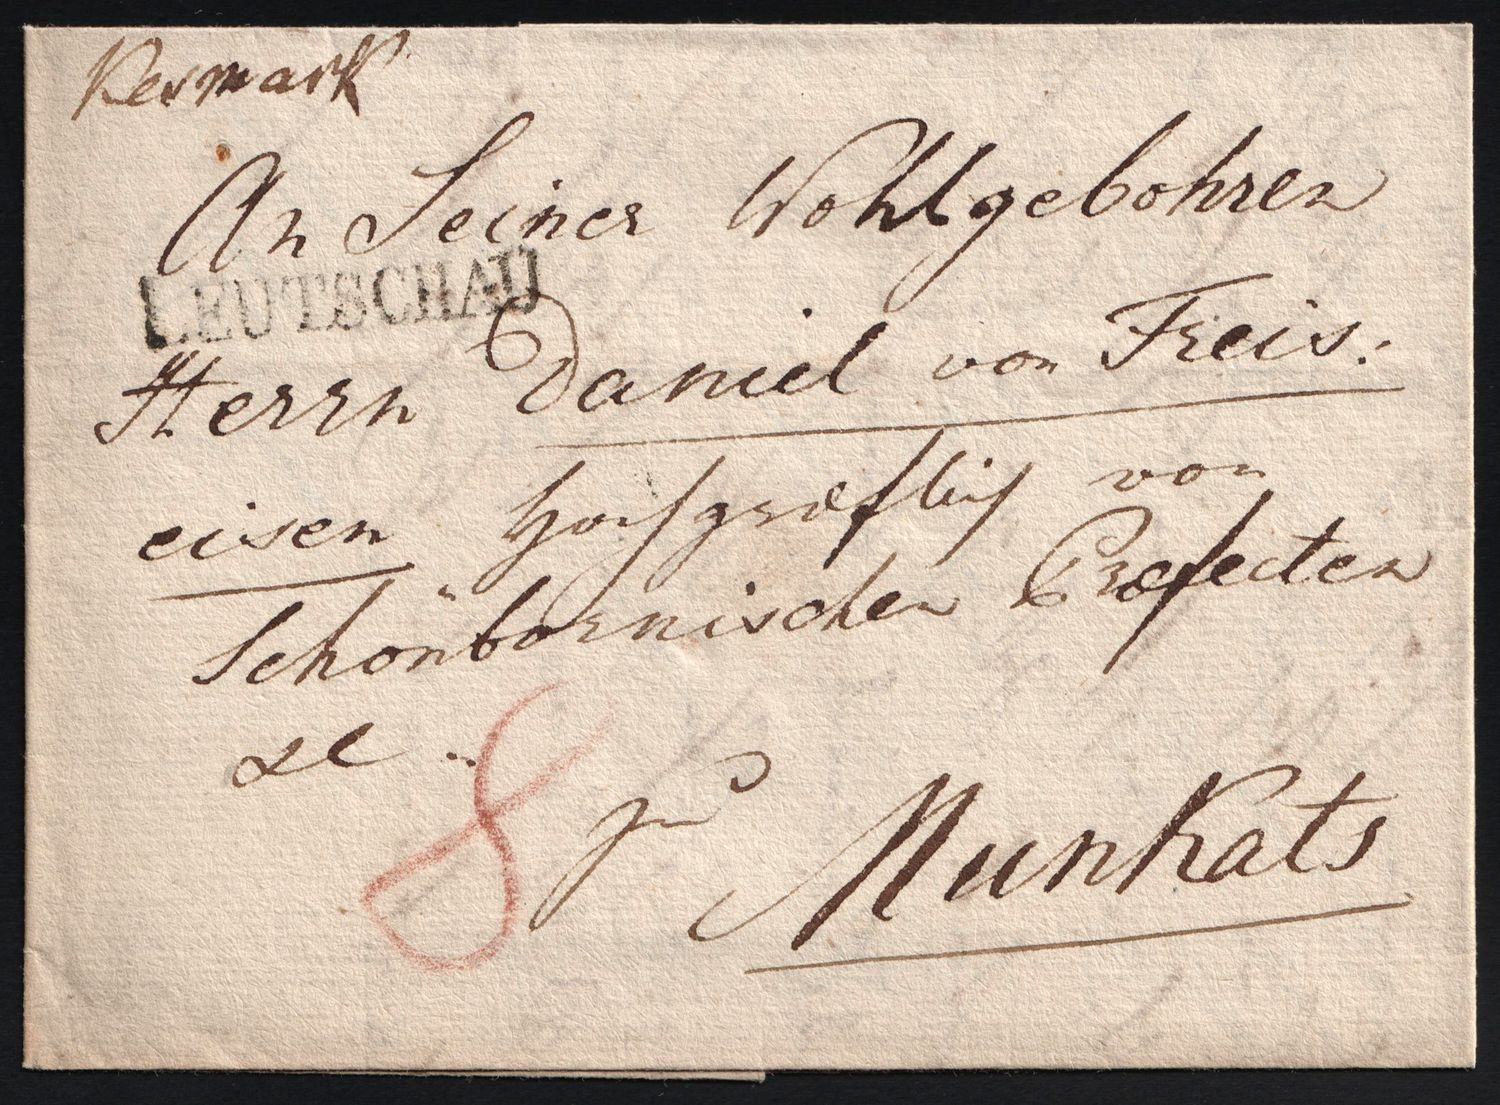 Kesmark
An Seiner Wohlgebohren
LEUTSCHAU
Herrn Daniel von Freis:
eisen Hochgræflich von
Schönbornischen Præfecten
8
zu Munkats